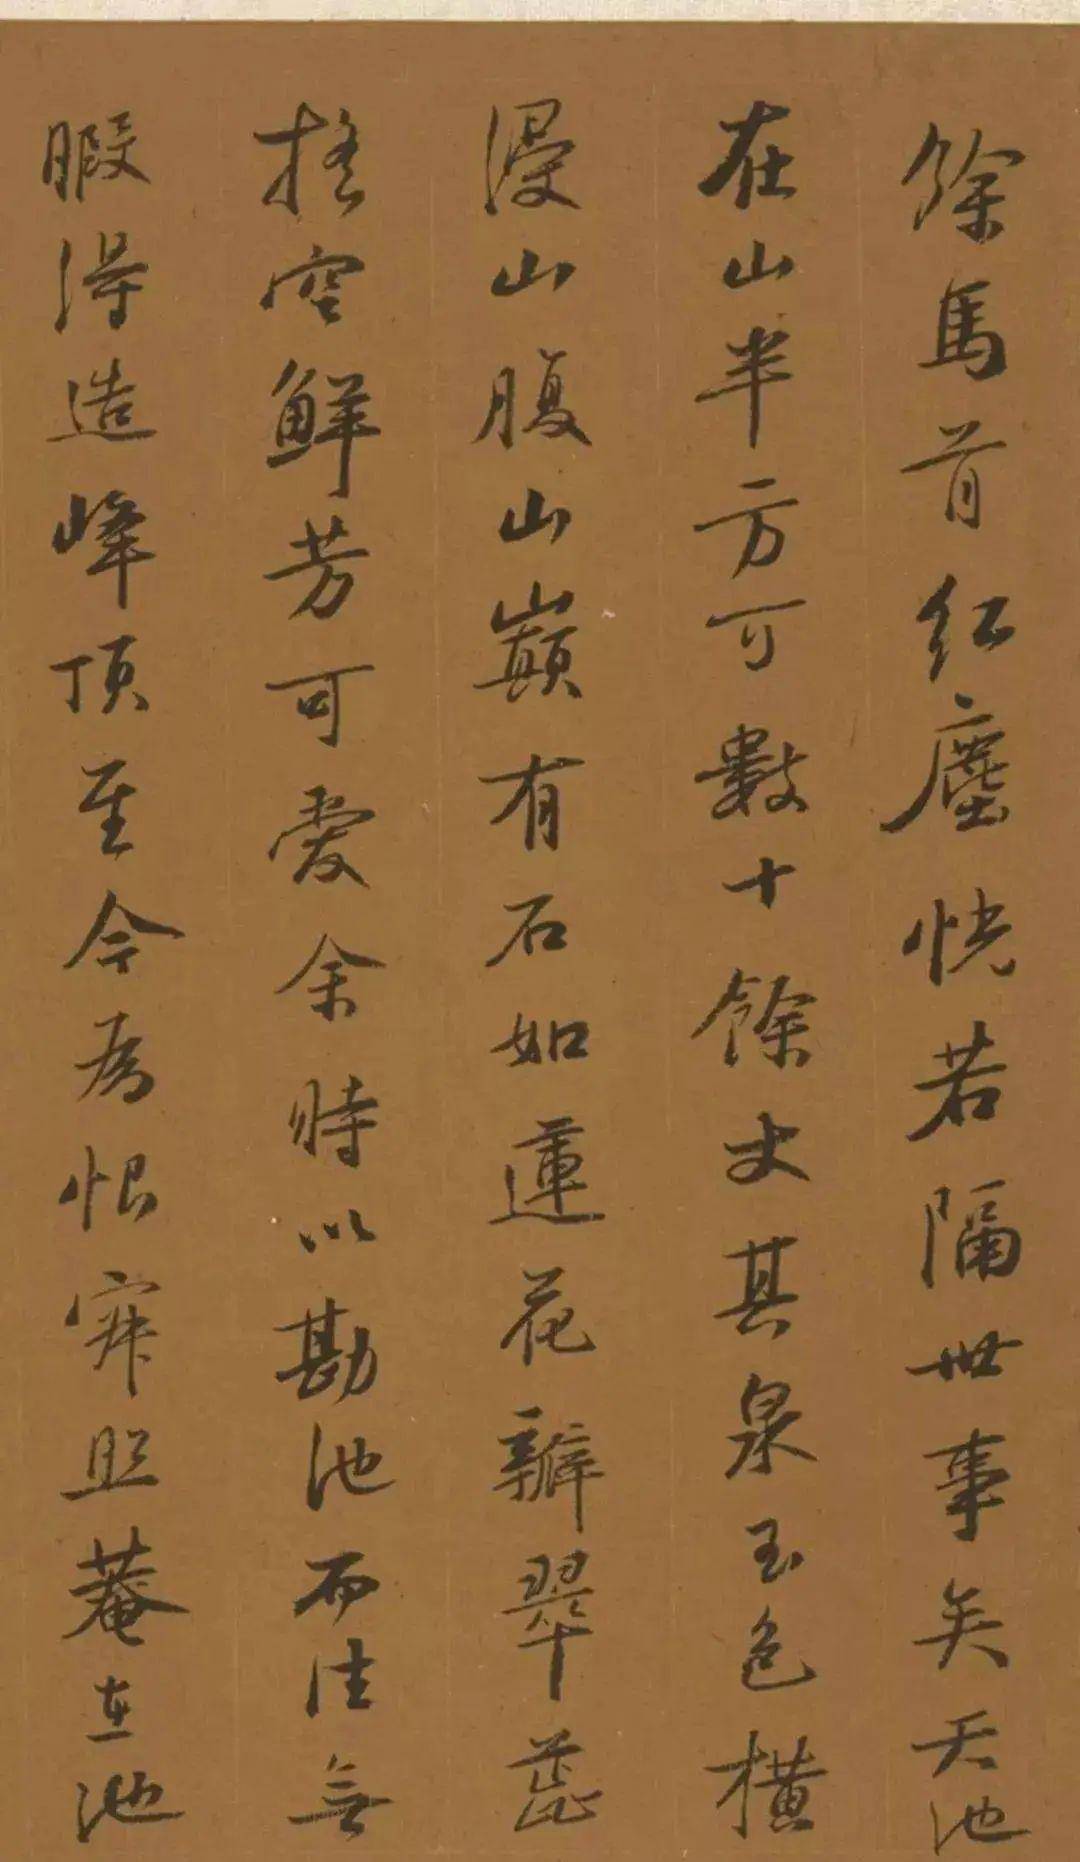 餘馬首紅塵恍若隔世事矣天池
在山半方可數十餘丈其泉玉色橫
浸山腹山巔有石如蓮花瓣翠蕤
搖空鮮芳可愛余時以勘池而往無
暇得造峰頂至今為恨寂照菴在池